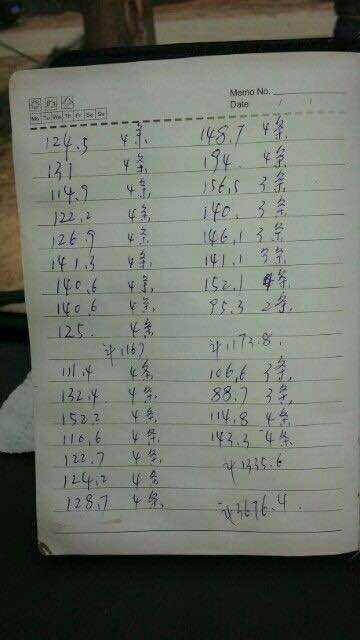 Memo No.
Date / /
Mo Tu We Th Fr Sa Su
124.5 4条
131 4条
114.9 4条
122.2 4条
126.9 4条
141.3 4条
140.6 4条
140.6 4条
125. 4条
计1167
111.4 4条
132.4 4条
152.2 4条
110.6 4条
122.7 4条
124.2 4条
128.7 4条
148.7 4条
194. 4条
156.5 3条
140. 3条
146.1 3条
141.1 3条
152.1 4条
95.3 2条
计1173.8.
106.6 3条
88.7 3条
114.8 4条
143.3 4条
计1335.6
计3676.4.